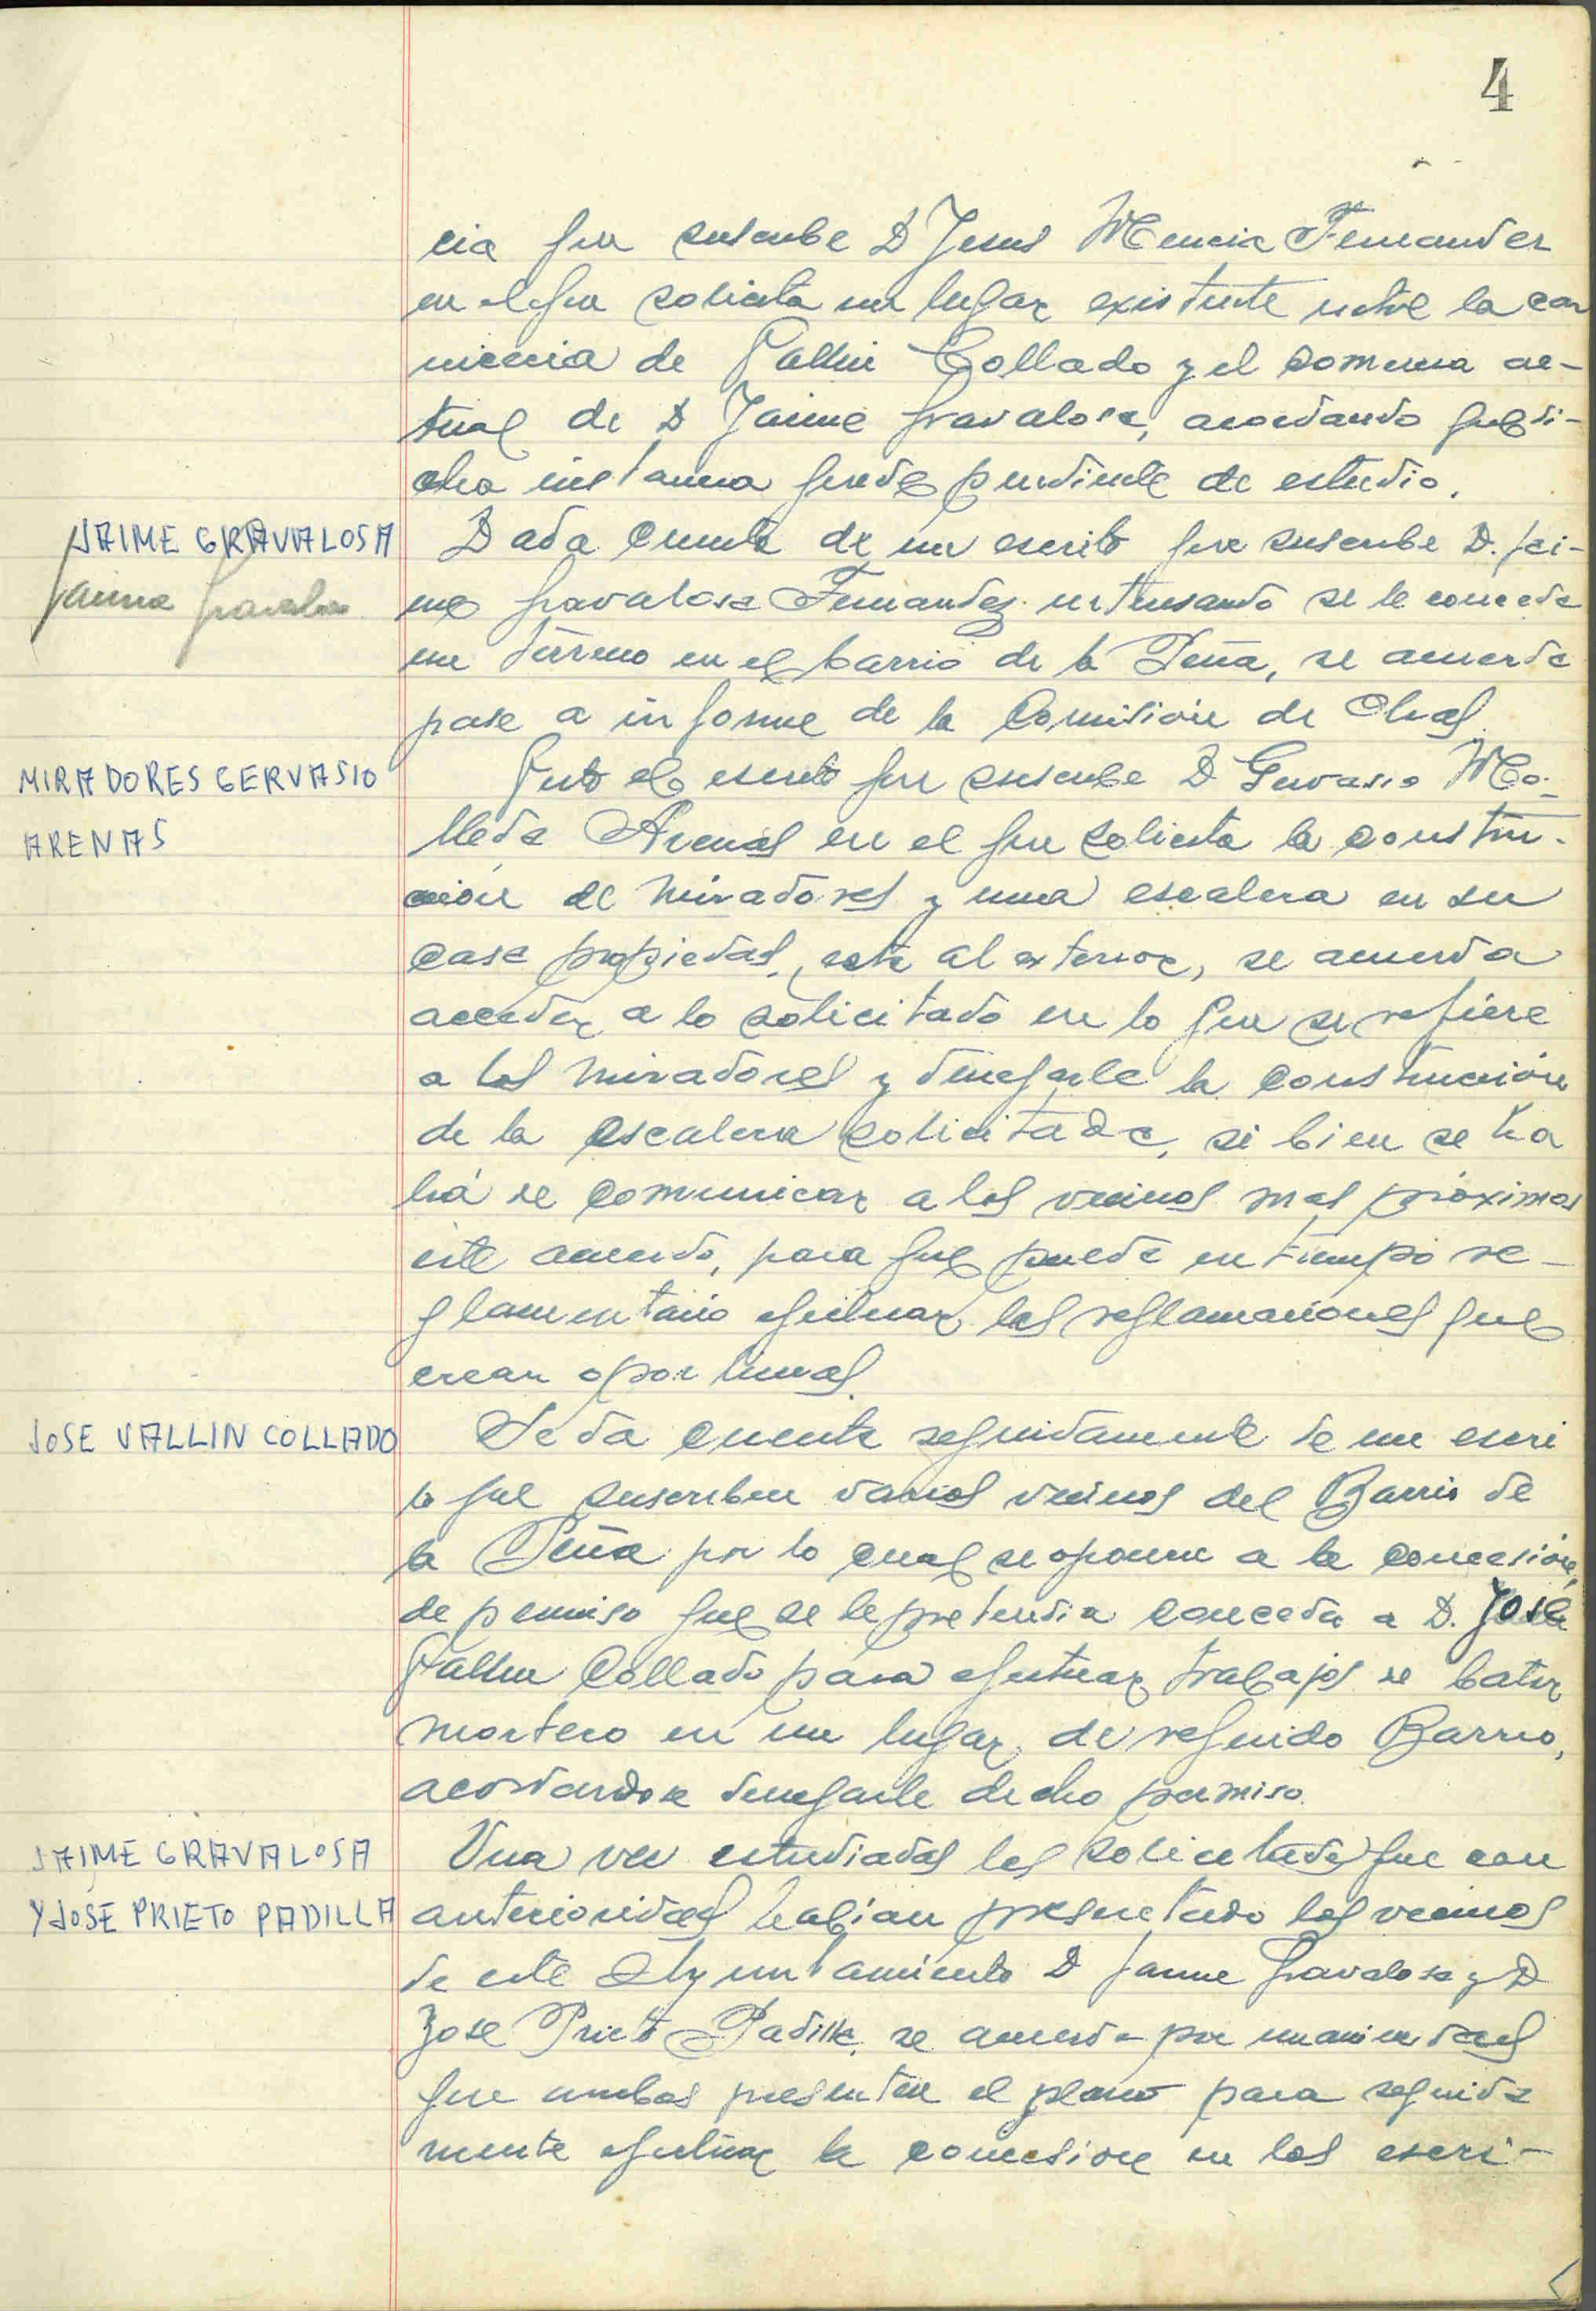 4
cia que suscribe D Jesus Mencia Fernandez
en el que solicita un lugar existente entre la car
niceria de Vallin Collado y el comerra ac-
tual de D Jaime Gravalosa, acordando que di-
cha instancia quede pendiente de estudio.
JAIME GRAVALOSA
Jaime Gravalosa
Dada cuenta de un escrito que suscribe D. Jai-
me Gravalosa Fernandez interesando se le conceda
un terreno en el barrio de la Peña, se acuerda
pase a informe de la Comisión de Obras.
MIRADORES GERVASIO
ARENAS
Visto el escrito que suscribe D Gervasio Mo-
lleda Arenas en el que solicita la construc-
ción de miradores y una escalera en su
casa propiedad, esta al exterior, se acuerda
acceder a lo solicitado en lo que se refiere
a los miradores y denegarle la construcción
de la escalera solicitada, si bien se ha
brá de comunicar a los vecinos mas próximos
este acuerdo, para que pueda en tiempo re-
glamentario efectuar las reglamaciones que
crean oportunas.
JOSE VALLIN COLLADO
Se da cuenta seguidamente de un escri
to que suscriben varios vecinos del Barrio de
la Peña por lo cual se oponen a la concesión,
de permiso que se le pretendia conceder a D. José
Vallin Collado para efectuar trabajos de batir
mortero en un lugar de referido Barrio,
acordandose denegarle dicho permiso.
JAIME GRAVALOSA
Y JOSE PRIETO PADILLA
Una vez estudiadas las solicitudes que con
anterioridad habian presentado los vecinos
de este Ayuntamiento D Jaime Gravalosa y D
Jose Prieto Padilla, se acuerda por unanimidad
que ambos presenten el plano para seguida
mente efectuar la concesion en los escri-